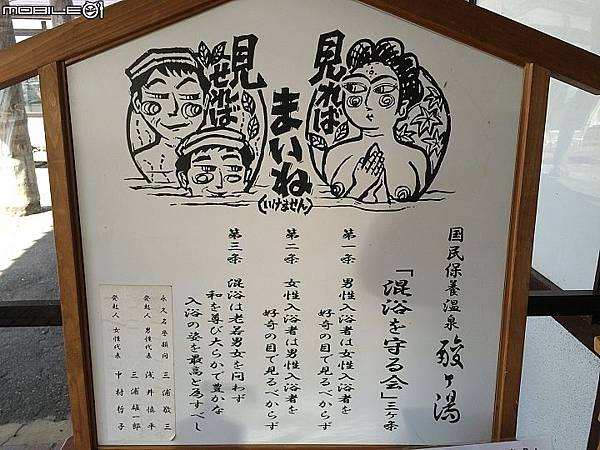 MOBILE01
見れば
見せれば
まいね
(いけません)
国民保養温泉
酸ヶ湯
「混浴を守る会」三ヶ条
第一条 男性入浴者は女性入浴者を
好奇の目で見るべからず
第二条 女性入浴者は男性入浴者を
好奇の目で見るべからず
第三条 混浴は老若男女を問わず
和を尊び大らかで豊かな
入浴の姿を最高と為すべし
永久名誉顧問 三浦敬三
発起人 男性代表 浅井慎平
三浦雄一郎
発起人 女性代表 中村哲子